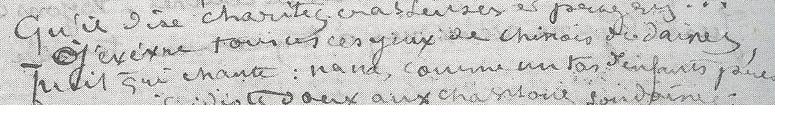 Qu'il dise charités crasseuses et progrès...
J'exècre tous ces yeux de chinois
Puis qui chante : nana, comme un tas d'enfants près
idiots doux aux chansons soudaines :